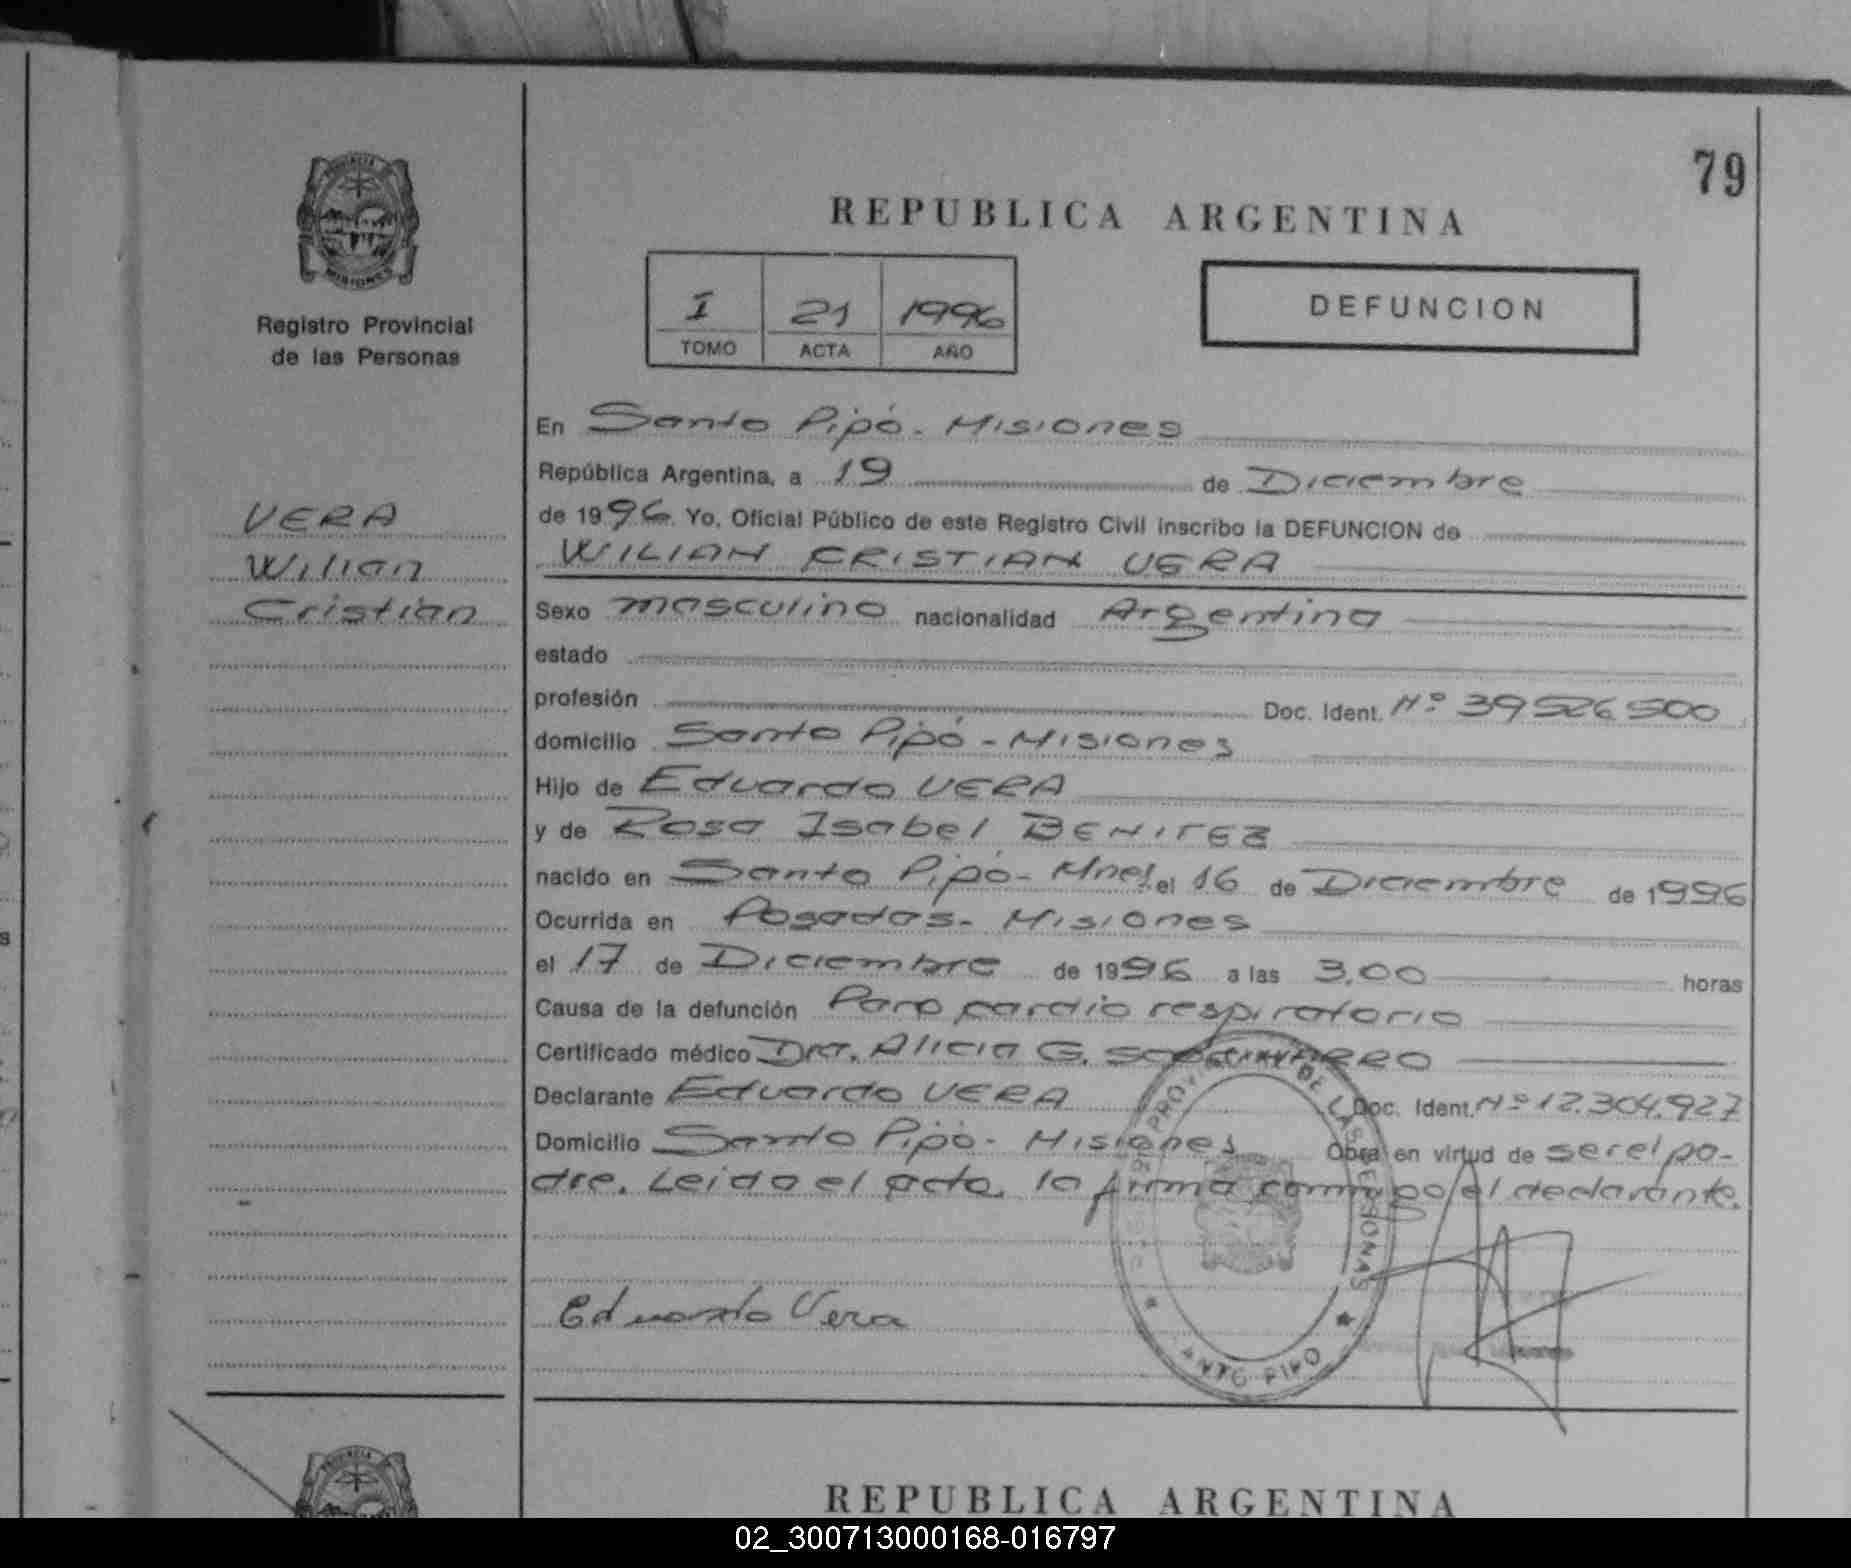 79
REPUBLICA ARGENTINA
PROVINCIA DE
MISIONES
Registro Provincial
de las Personas
I 21 1996
TOMO ACTA AÑO
DEFUNCION
VERA
Wilian
Cristian
En Santo Pipó - Misiones
República Argentina, a 19 de Diciembre
de 1996. Yo, Oficial Público de este Registro Civil inscribo la DEFUNCION de
WILIAN CRISTIAN VERA
Sexo masculino nacionalidad Argentina
estado
profesión Doc. Ident. Nº 39526500
domicilio Santo Pipó - Misiones
Hijo de Eduardo VERA
y de Rosa Isabel BENITEZ
nacido en Santo Pipó - Mnes. el 16 de Diciembre de 1996
Ocurrida en Posadas - Misiones
el 17 de Diciembre de 1996 a las 3,00 horas
Causa de la defunción Paro cardio respiratorio
Certificado médico Dra. Alicia G.
Declarante Eduardo VERA Doc. Ident. Nº 12.304.927
Domicilio Santo Pipó - Misiones Obra en virtud de ser el pa-
dre. Leida el acta, la firma conmigo el declarante.
Eduardo Vera
REPUBLICA ARGENTINA
02_300713000168-016797